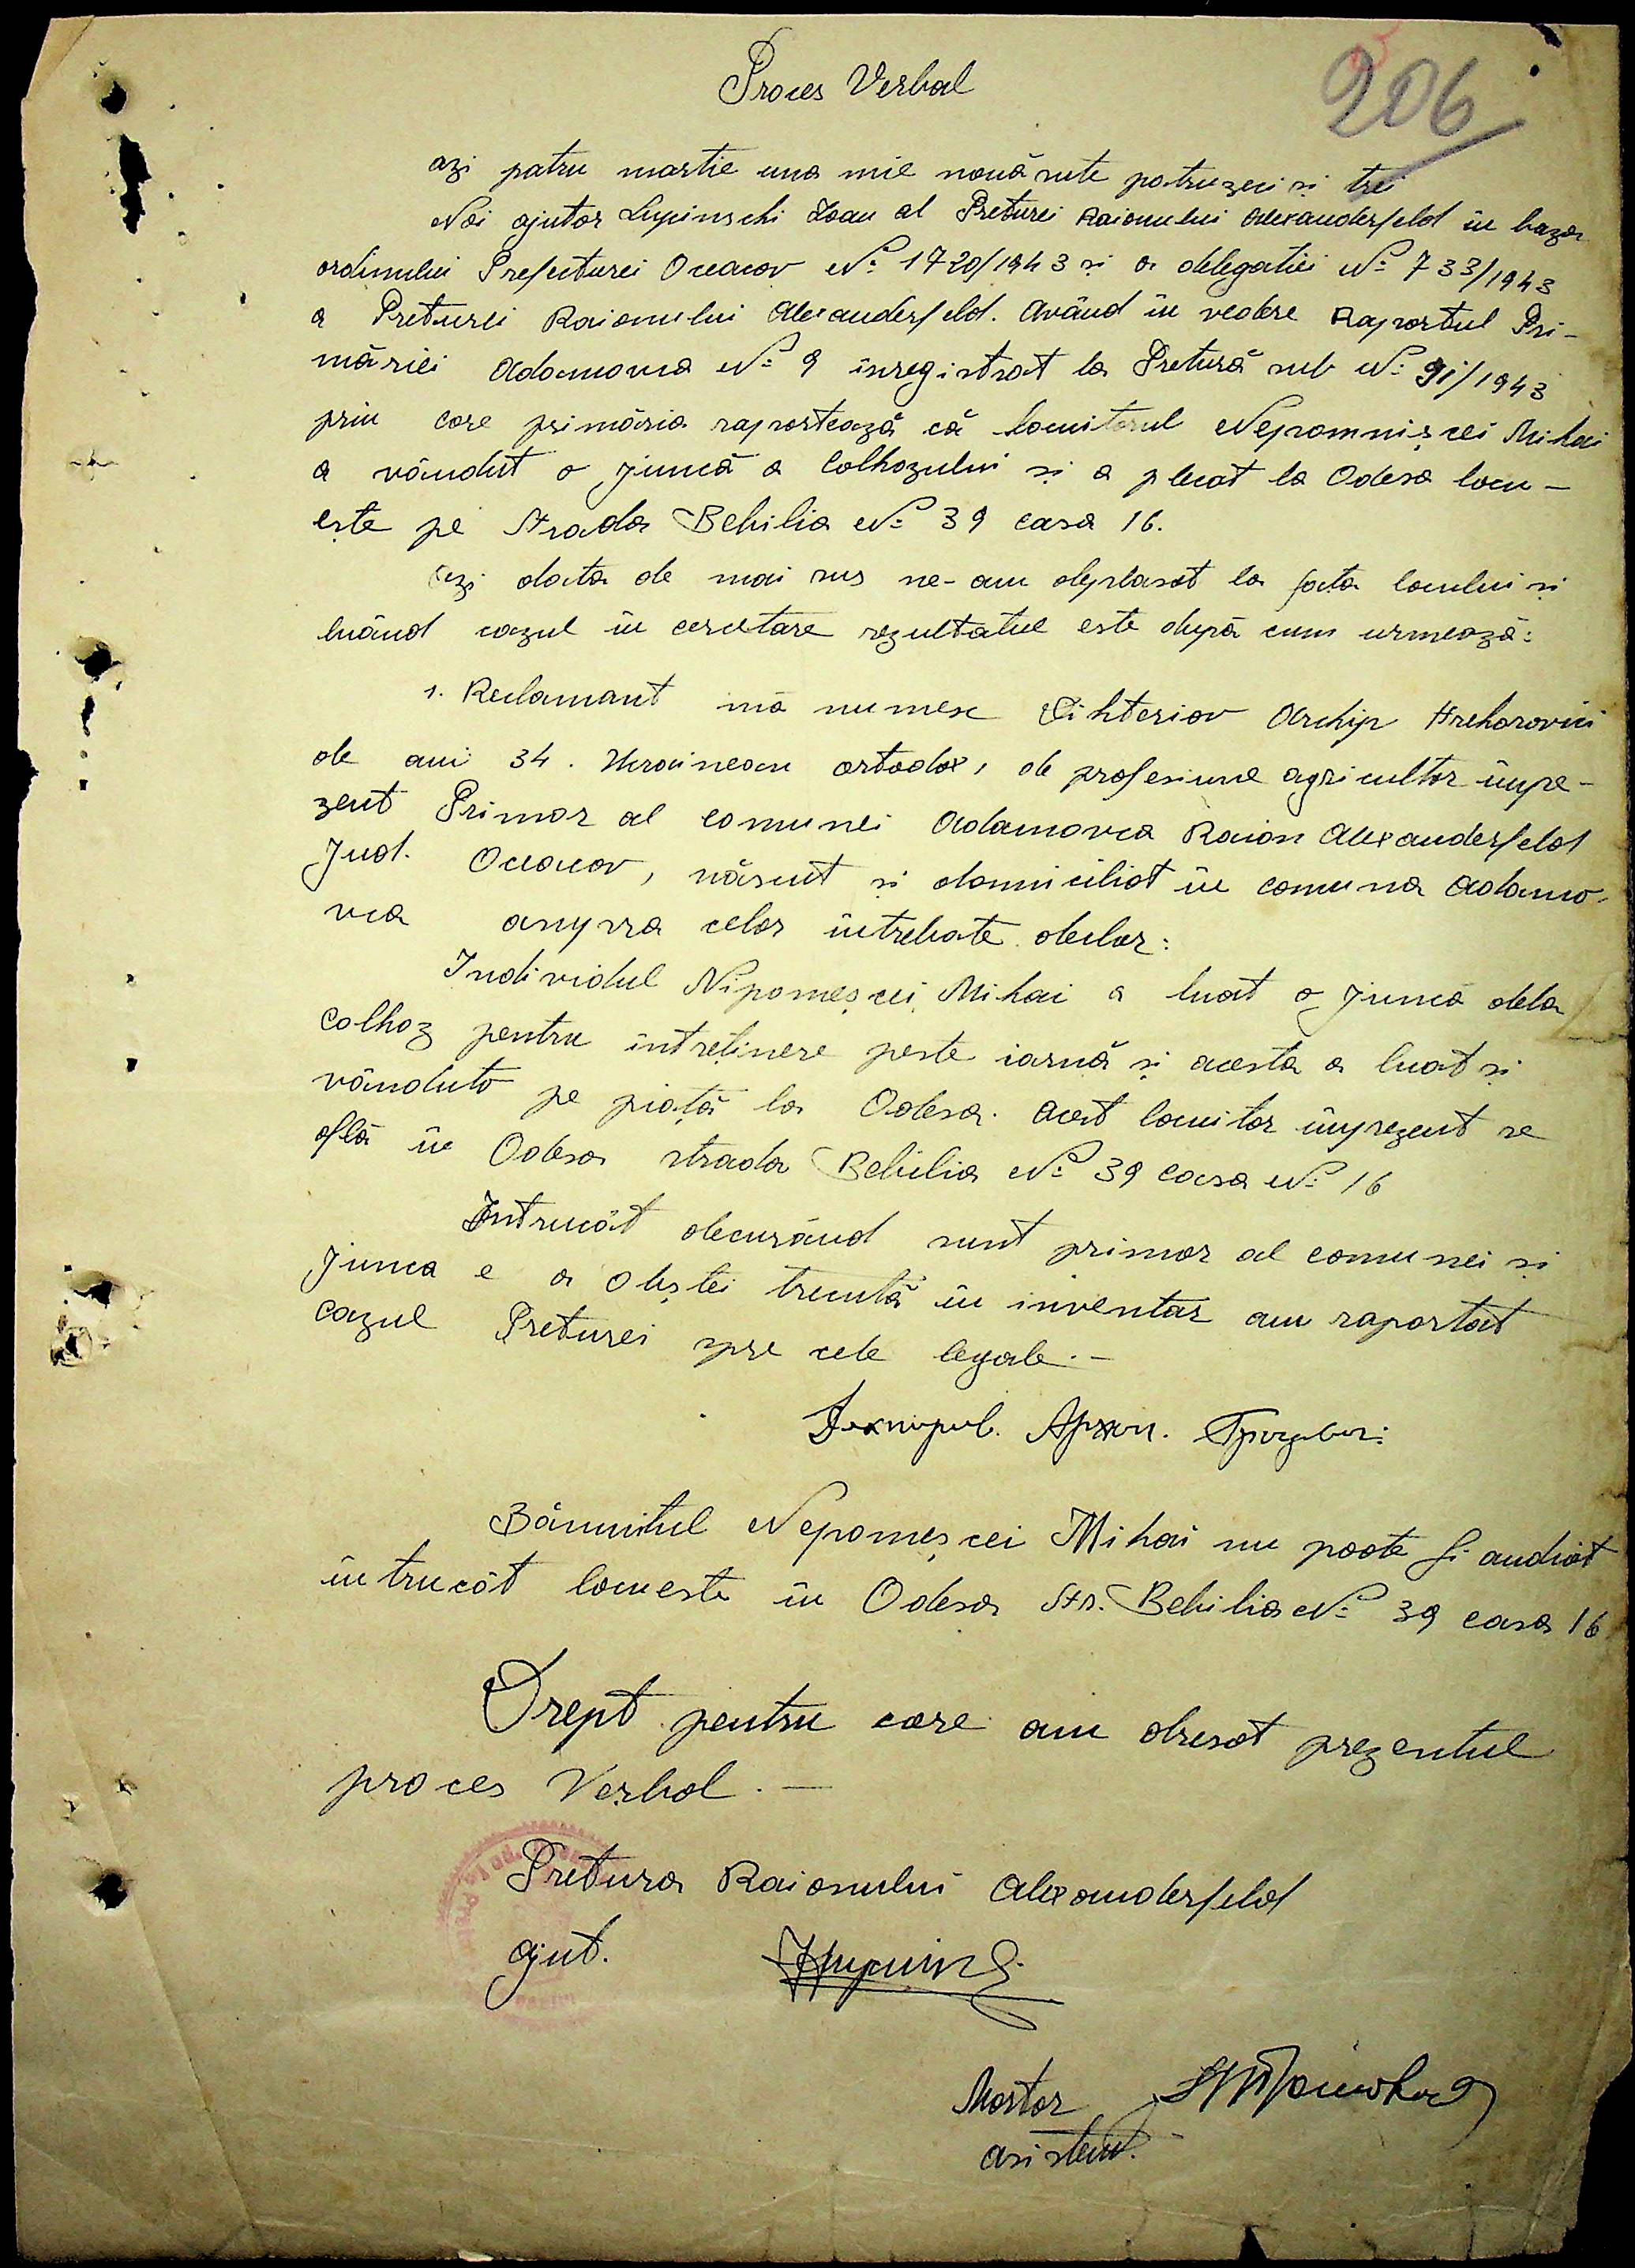 206
Proces Verbal
azi patru martie una mie nouă sute patruzeci și trei
Noi ajutor Lupinschi Ioan al Preturei Raionului Alexanderfeld în baza
ordinului Prefecturei Oceacov No 1720/1943 și a delegatiei No 733/1943
a Preturei Raionului Alexanderfeld. Având în vedere Raportul Pri-
măriei Adamovca No 9 înregistrat la Pretură sub No 91/1943
prin care primăria raportează că locuitorul Nepomnișcei Mihai
a vândut o juncă a Colhozului și a plecat la Odesa locu-
ește pe Strada Behilia No 39 casa 16.
Azi data de mai sus ne-am deplasat la fața locului și
luând cazul în cercetare rezultatul este după cum urmează:
1. Reclamant mă numesc Dihteriov Archip Hrehorovici
de ani 34. Ucrainean ortodox, de profesiune agricultor înpre-
zent Primar al comunei Adamovca Raion Alexanderfeld
Jud. Oceacov, născut și domiciliat în comuna Adamo-
vca asupra celor întrebate declar:
Individul Nipomeșcei Mihai a luat o juncă dela
Colhoz pentru întreținere peste iarnă și acesta a luat și
vânduto pe piață la Odesa. Acest locuitor înprezent se
află în Odesa strada Behilia No 39 casa No 16
Intrucât decurând sunt primar al comunei și
Junca e a Obștei trecută în inventar am raportat
cazul Preturei spre cele legale.-
Архип.
Bănuitul Nepomeșcei Mihai nu poate fi audiat
întrucât locueste în Odesa Str. Behilia No 39 casa 16
Drept pentru care am dresat prezentul
proces Verbal.—
Pretura Raionului Alexanderfeld
ajut.
Martor
asistent.